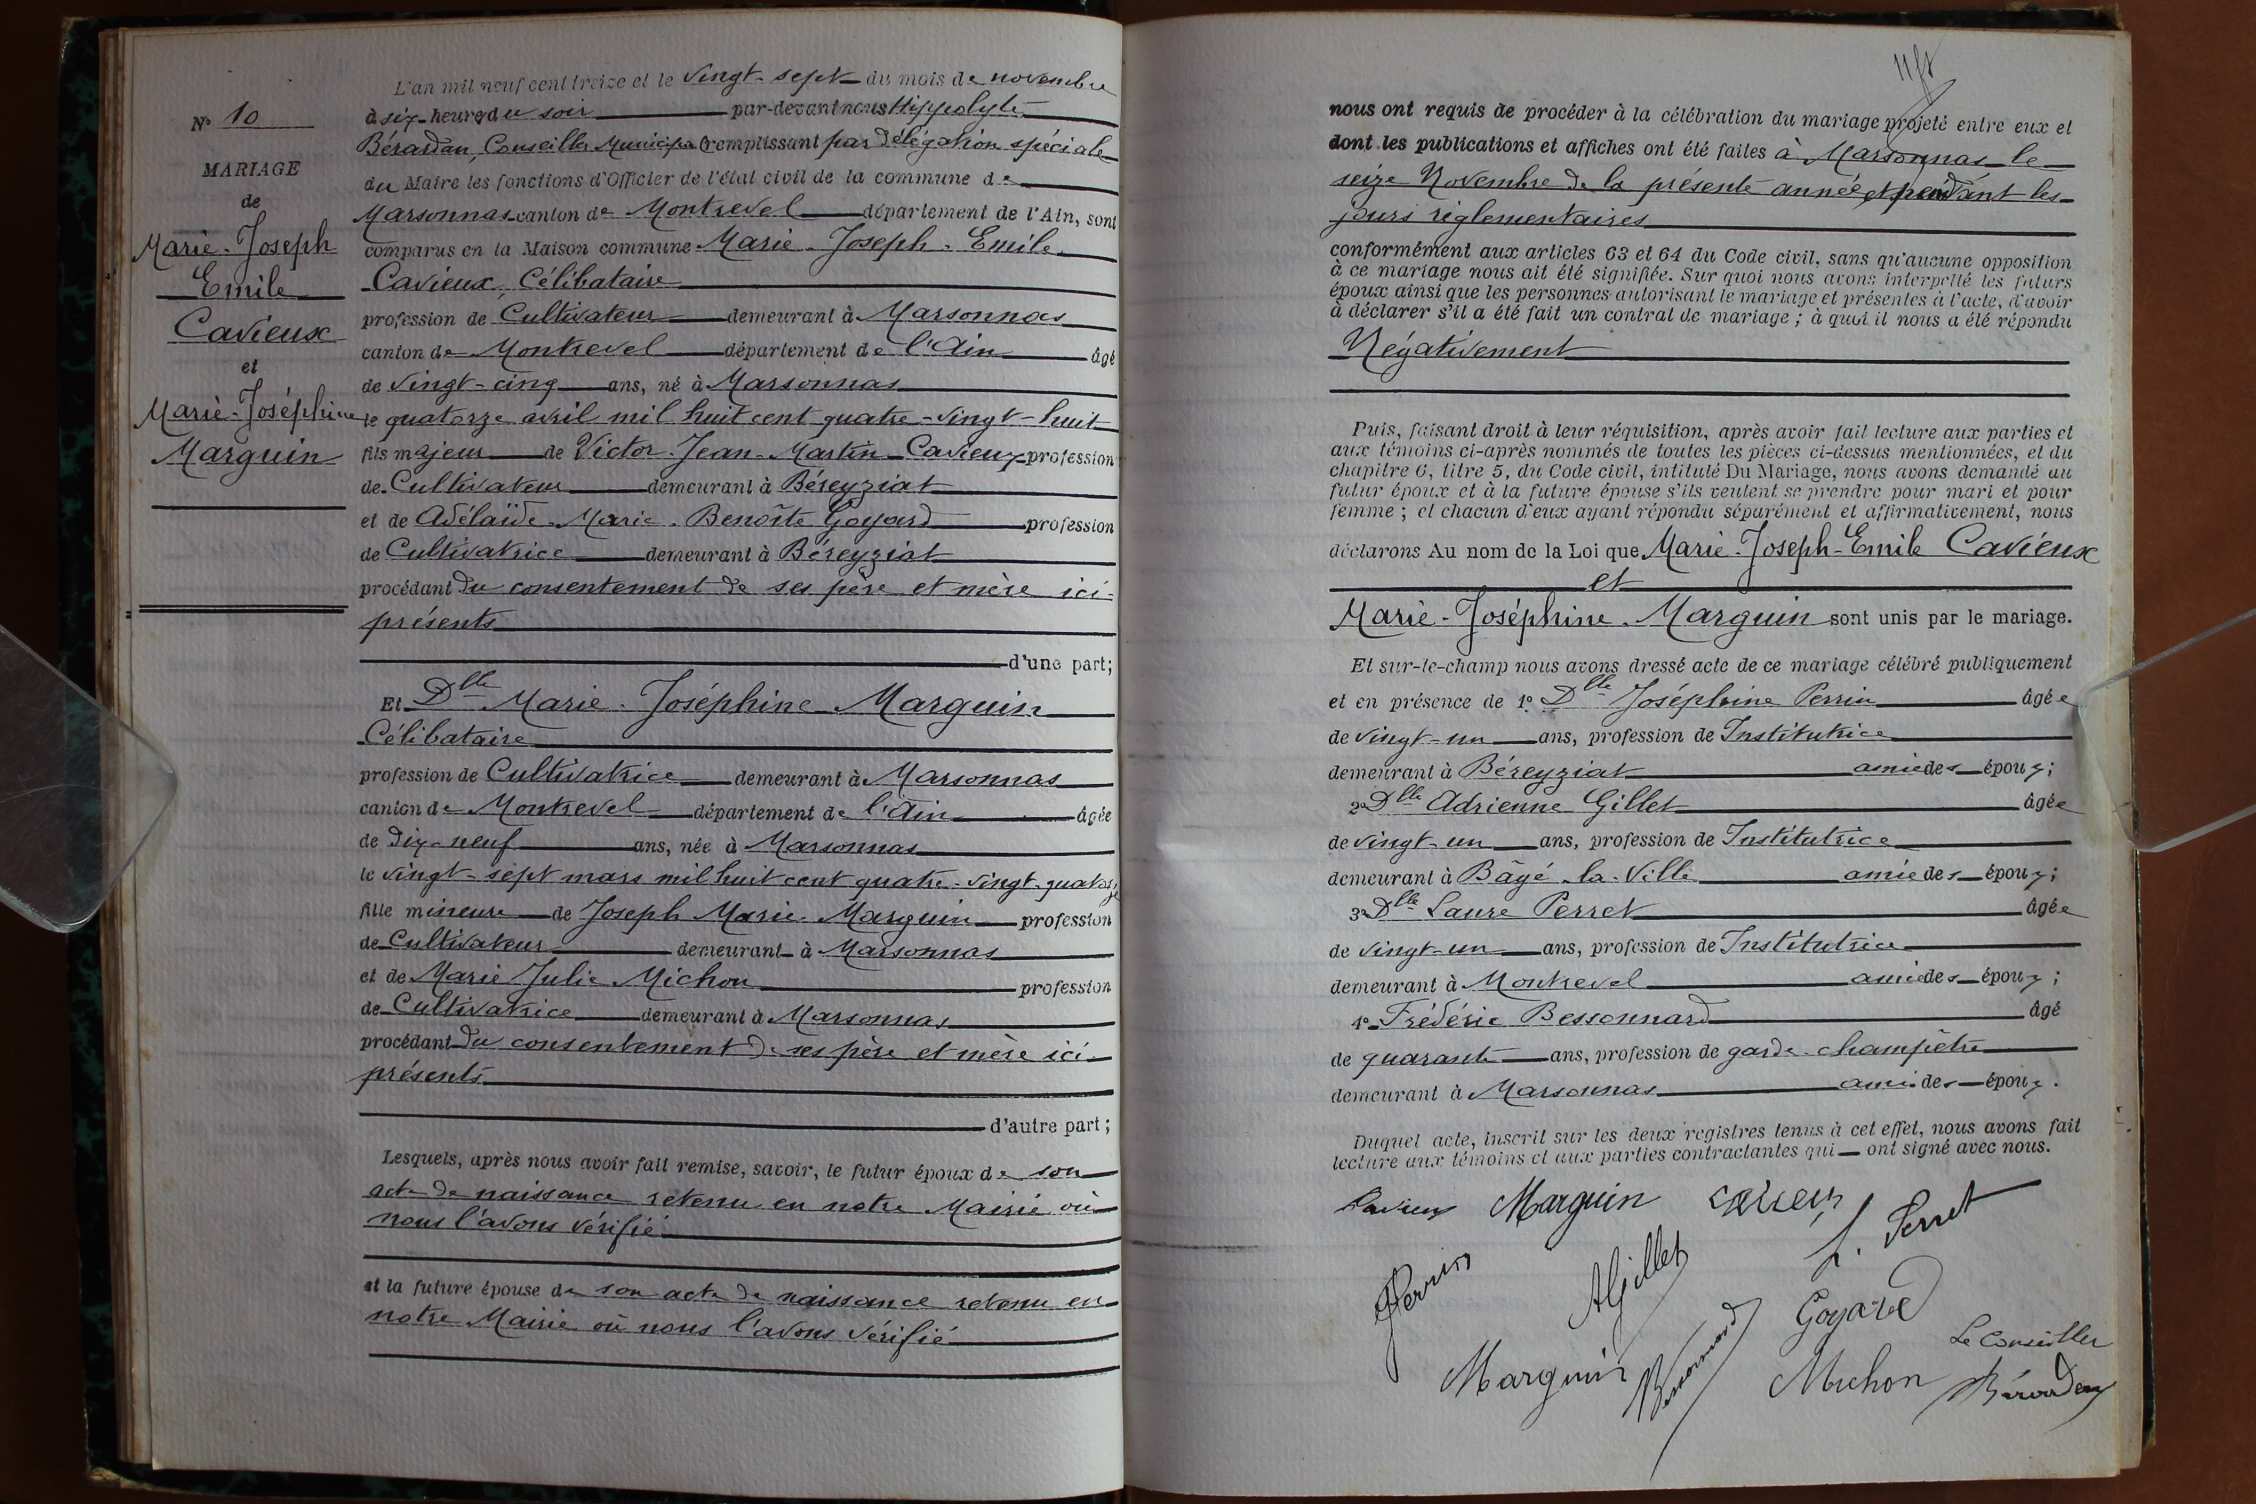 N° 10
MARIAGE
de
Marie-Joseph
Emile
Cavieux
et
Marie-Joséphine
Marguin
L'an mil neuf cent treize et le vingt-sept du mois de novembre
à six heures du soir par-devant nous Hippolyte
Bérardan, Conseiller Municipal remplissant par délégation spéciale
du Maire les fonctions d'Officier de l'état civil de la commune de
Marsonnas canton de Montrevel département de l'Ain, sont
comparus en la Maison commune Marie-Joseph-Emile
Cavieux, Célibataire
profession de Cultivateur demeurant à Marsonnas
canton de Montrevel département de l'Ain âgé
de vingt-cinq ans, né à Marsonnas
le quatorze avril mil huit cent quatre-vingt-huit
fils majeur de Victor-Jean-Martin Cavieux profession
de Cultivateur demeurant à Béreyziat
et de Adélaïde-Marie-Benoîte Goyard profession
de Cultivatrice demeurant à Béreyziat
procédant du consentement de ses père et mère ici-
présents
d'une part;
Et Dlle Marie-Joséphine Marguin
Célibataire
profession de Cultivatrice demeurant à Marsonnas
canton de Montrevel département de l'Ain âgée
de dix-neuf ans, née à Marsonnas
le vingt-sept mars mil huit cent quatre-vingt-quatorze
fille mineure de Joseph Marie Marguin profession
de Cultivateur demeurant à Marsonnas
et de Marie Julie Michon profession
de Cultivatrice demeurant à Marsonnas
procédant du consentement de ses père et mère ici-
présents
d'autre part;
Lesquels, après nous avoir fait remise, savoir, le futur époux de son
acte de naissance retenu en notre Mairie où
nous l'avons vérifié
et la future épouse de son acte de naissance retenu en
notre Mairie où nous l'avons vérifié
nous ont requis de procéder à la célébration du mariage projeté entre eux et
dont les publications et affiches ont été faites à Marsonnas le
seize Novembre de la présente année et pendant les
jours réglementaires
conformément aux articles 63 et 64 du Code civil, sans qu'aucune opposition
à ce mariage nous ait été signifiée. Sur quoi nous avons interpellé les futurs
époux ainsi que les personnes autorisant le mariage et présentes à l'acte, d'avoir
à déclarer s'il a été fait un contrat de mariage; à quoi il nous a été répondu
Négativement
Puis, faisant droit à leur réquisition, après avoir fait lecture aux parties et
aux témoins ci-après nommés de toutes les pièces ci-dessus mentionnées, et du
chapitre 6, titre 5, du Code civil, intitulé Du Mariage, nous avons demandé au
futur époux et à la future épouse s'ils veulent se prendre pour mari et pour
femme; et chacun d'eux ayant répondu séparément et affirmativement, nous
déclarons Au nom de la Loi que Marie-Joseph-Emile Cavieux
et
Marie-Joséphine Marguin sont unis par le mariage.
Et sur-le-champ nous avons dressé acte de ce mariage célébré publiquement
et en présence de 1° Dlle Joséphine Perrin âgée
de vingt-un ans, profession de Institutrice
demeurant à Béreyziat amie des époux;
2° Dlle Adrienne Gillet âgée
de vingt-un ans, profession de Institutrice
demeurant à Bâgé-la-Ville amie des époux;
3° Dlle Laure Perret âgée
de vingt-un ans, profession de Institutrice
demeurant à Montrevel amie des époux;
4° Frédéric Bessonnard âgé
de quarante ans, profession de garde-champêtre
demeurant à Marsonnas ami des époux.
Duquel acte, inscrit sur les deux registres tenus à cet effet, nous avons fait
lecture aux témoins et aux parties contractantes qui ont signé avec nous.
Cavieux Marguin
L. Perret
JPerrin AGillet
Goyard
Le Conseiller
Marguin Bessonnard Michon Bérardan